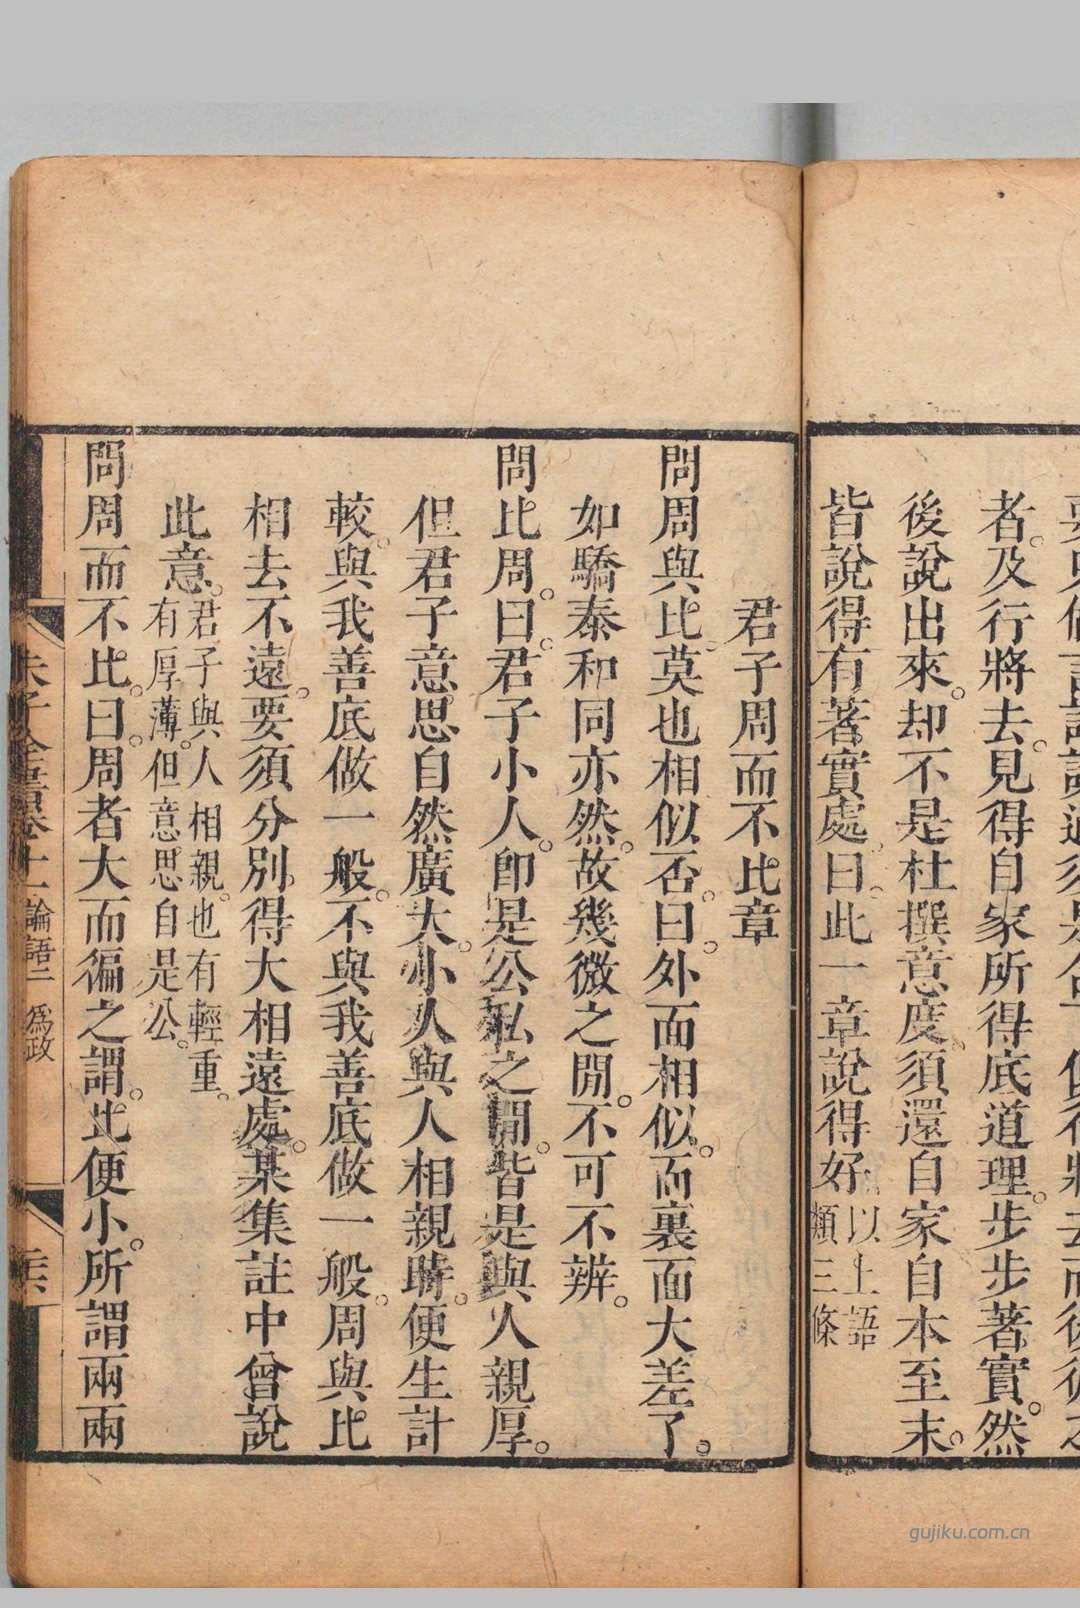 者。及行將去。見得自家所得底道理。步步著實。然
後說出來。却不是杜撰意度。須還自家自本至末。
皆說得有著實處。曰。此一章說得好。以上語
類三條
君子周而不比章
問周與比。莫也相似否。曰。外面相似。而裏面大差了。
如驕泰和同亦然。故幾微之閒。不可不辨。
問比周。曰。君子小人。卽是公私之閒。皆是與人親厚。
但君子意思自然廣大。小人與人相親時。便生計
較。與我善底做一般。不與我善底做一般。周與比
相去不遠。要須分別得大相遠處。某集註中曾說
此意。君子與人相親。也有輕重。
有厚薄。但意思自是公。
問周而不比。曰。周者大而徧之謂。比便小。所謂兩兩
朱子全書卷十一 論語二 爲政
gujiku.com.cn